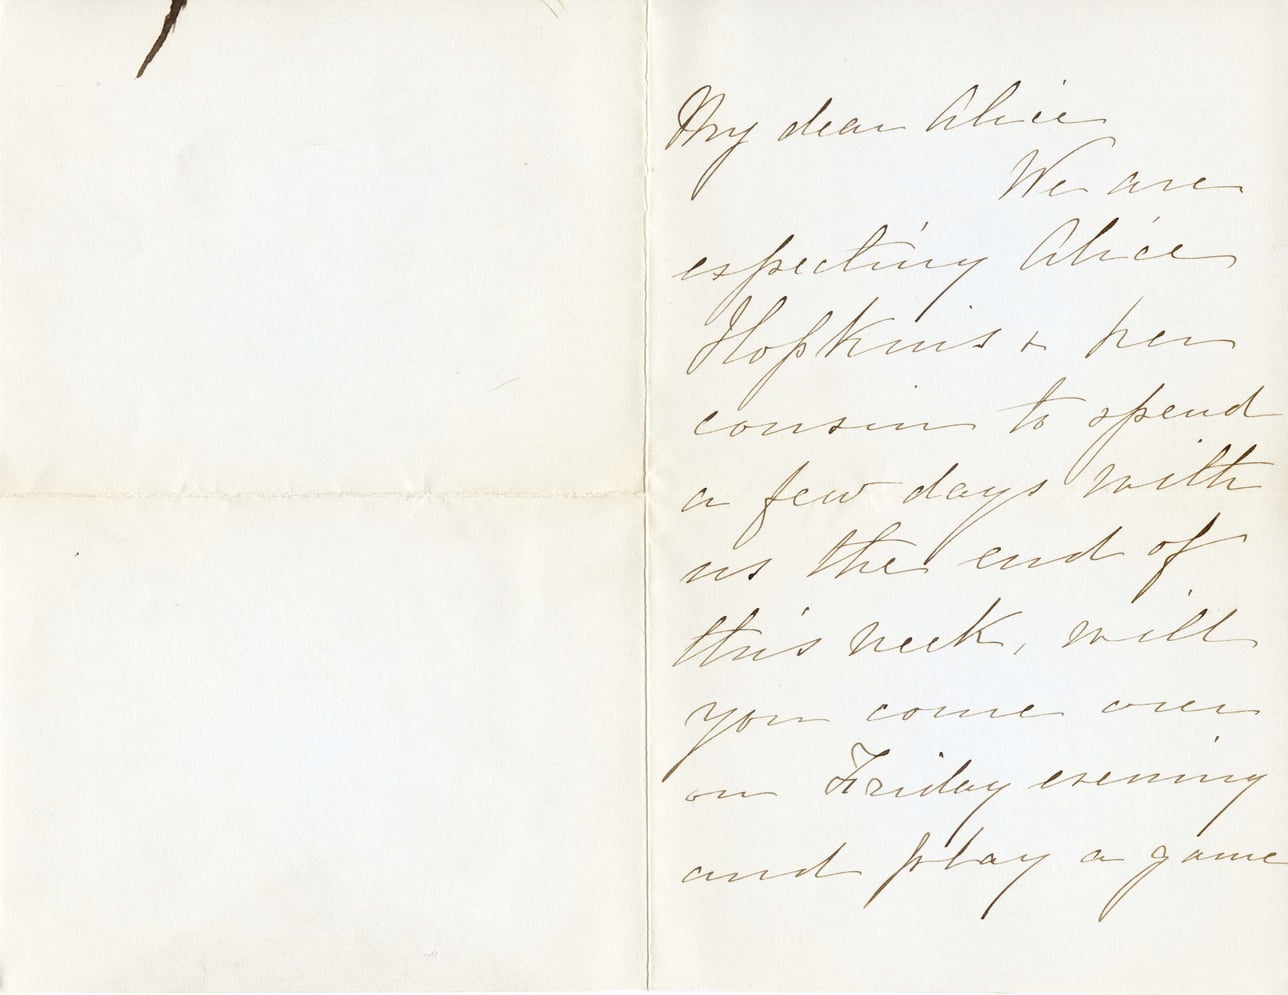 My dear Alice
We are
expecting Alice
Hopkins & her
cousin to spend
a few days with
us the end of
this week, will
you come over
on Friday evening
and play a game